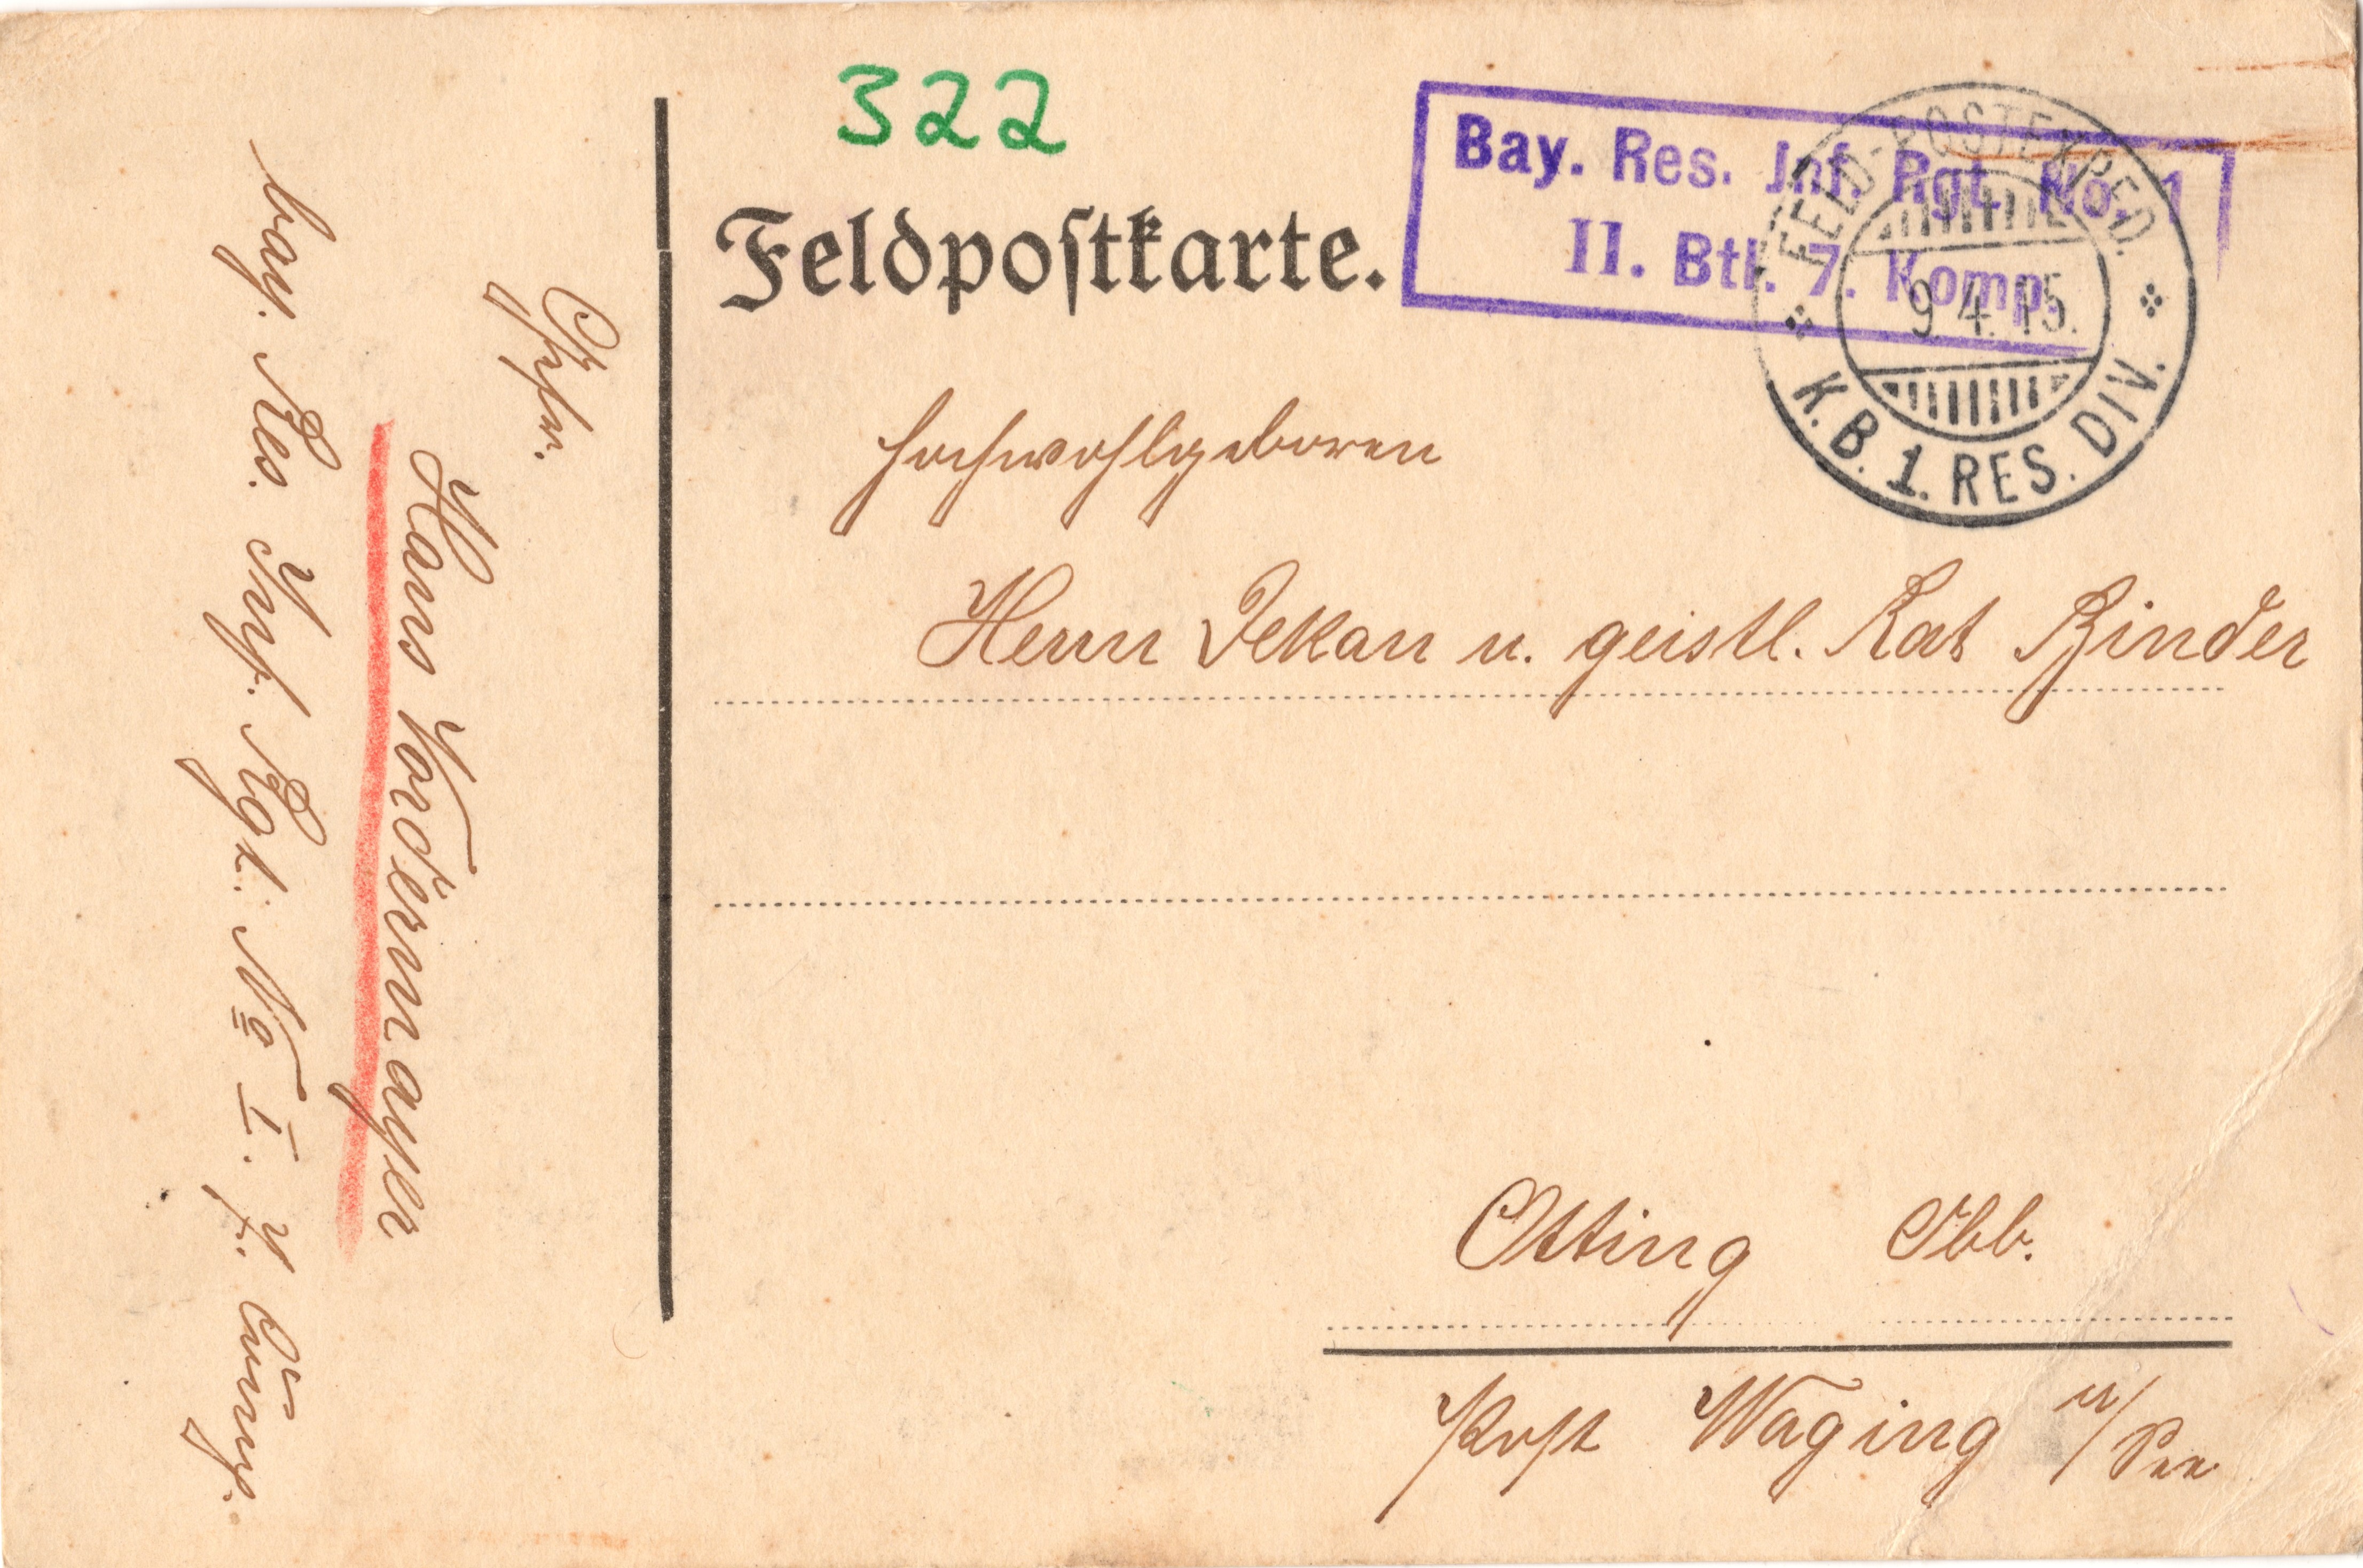 322
Feldpostkarte.
Bay. Res. Inf. Rgt. No. 1
II. Btl. 7. Komp.
FELD-POSTEXPED.
9 4. 15.
K. B. 1. RES. DIV.
Hochwohlgeboren
Herrn Dekan u. geistl. Rat Binder
Otting Obb.
Post Waging a/See
Hans Vordermayer
bay. Res. Inf. Rgt. No I. 7. Comp.